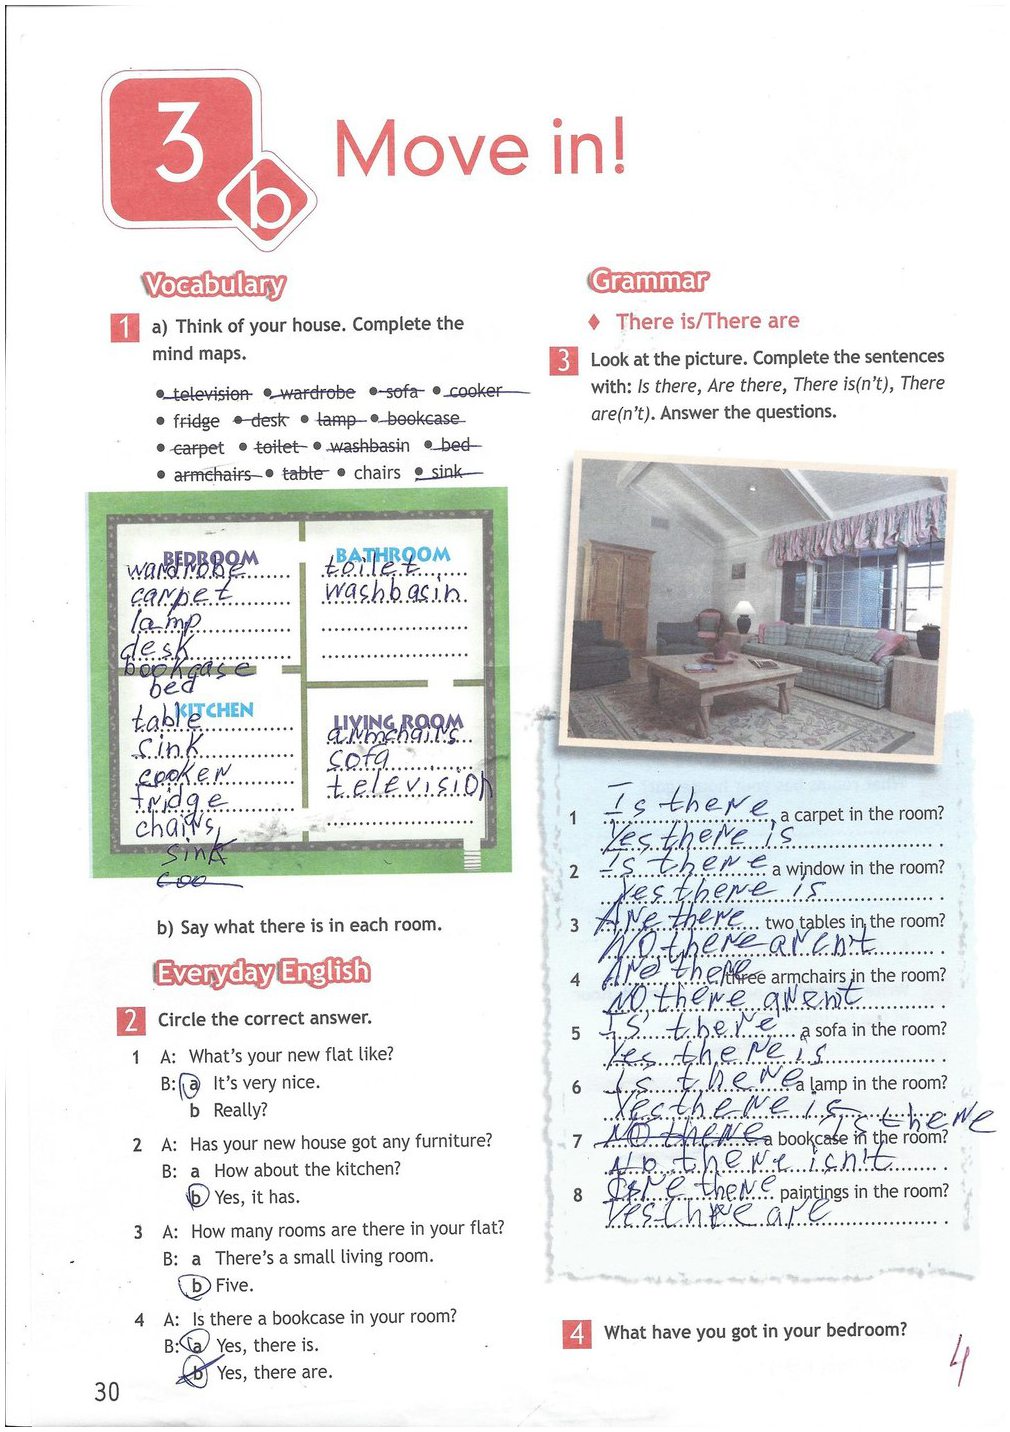 3
b
Move in!
Vocabulary
1 a) Think of your house. Complete the
mind maps.
• television • wardrobe • sofa • cooker
• fridge • desk • lamp • bookcase
• carpet • toilet • washbasin • bed
• armchairs • table • chairs • sink
BEDROOM
wardrobe
carpet
lamp
desk
bookcase
bed
BATHROOM
toilet
washbasin
KITCHEN
table
sink
cooker
fridge
chairs
sink
coo
LIVING ROOM
armchairs
sofa
television
b) Say what there is in each room.
Everyday English
2 Circle the correct answer.
1 A: What's your new flat like?
B: a It's very nice.
b Really?
2 A: Has your new house got any furniture?
B: a How about the kitchen?
b Yes, it has.
3 A: How many rooms are there in your flat?
B: a There's a small living room.
b Five.
4 A: Is there a bookcase in your room?
B: a Yes, there is.
b Yes, there are.
30
Grammar
♦ There is/There are
3 Look at the picture. Complete the sentences
with: Is there, Are there, There is(n't), There
are(n't). Answer the questions.
1 Is there a carpet in the room?
Yes there is
2 Is there a window in the room?
Yes there is
3 Are there two tables in the room?
NO there aren't
4 Are there three armchairs in the room?
NO, there arent
5 Is there a sofa in the room?
Yes there is
6 Is there a lamp in the room?
Yes there is
7 NO there a bookcase in the room? Is there
No there isn't
8 Are there paintings in the room?
Yes there are
4 What have you got in your bedroom?
4